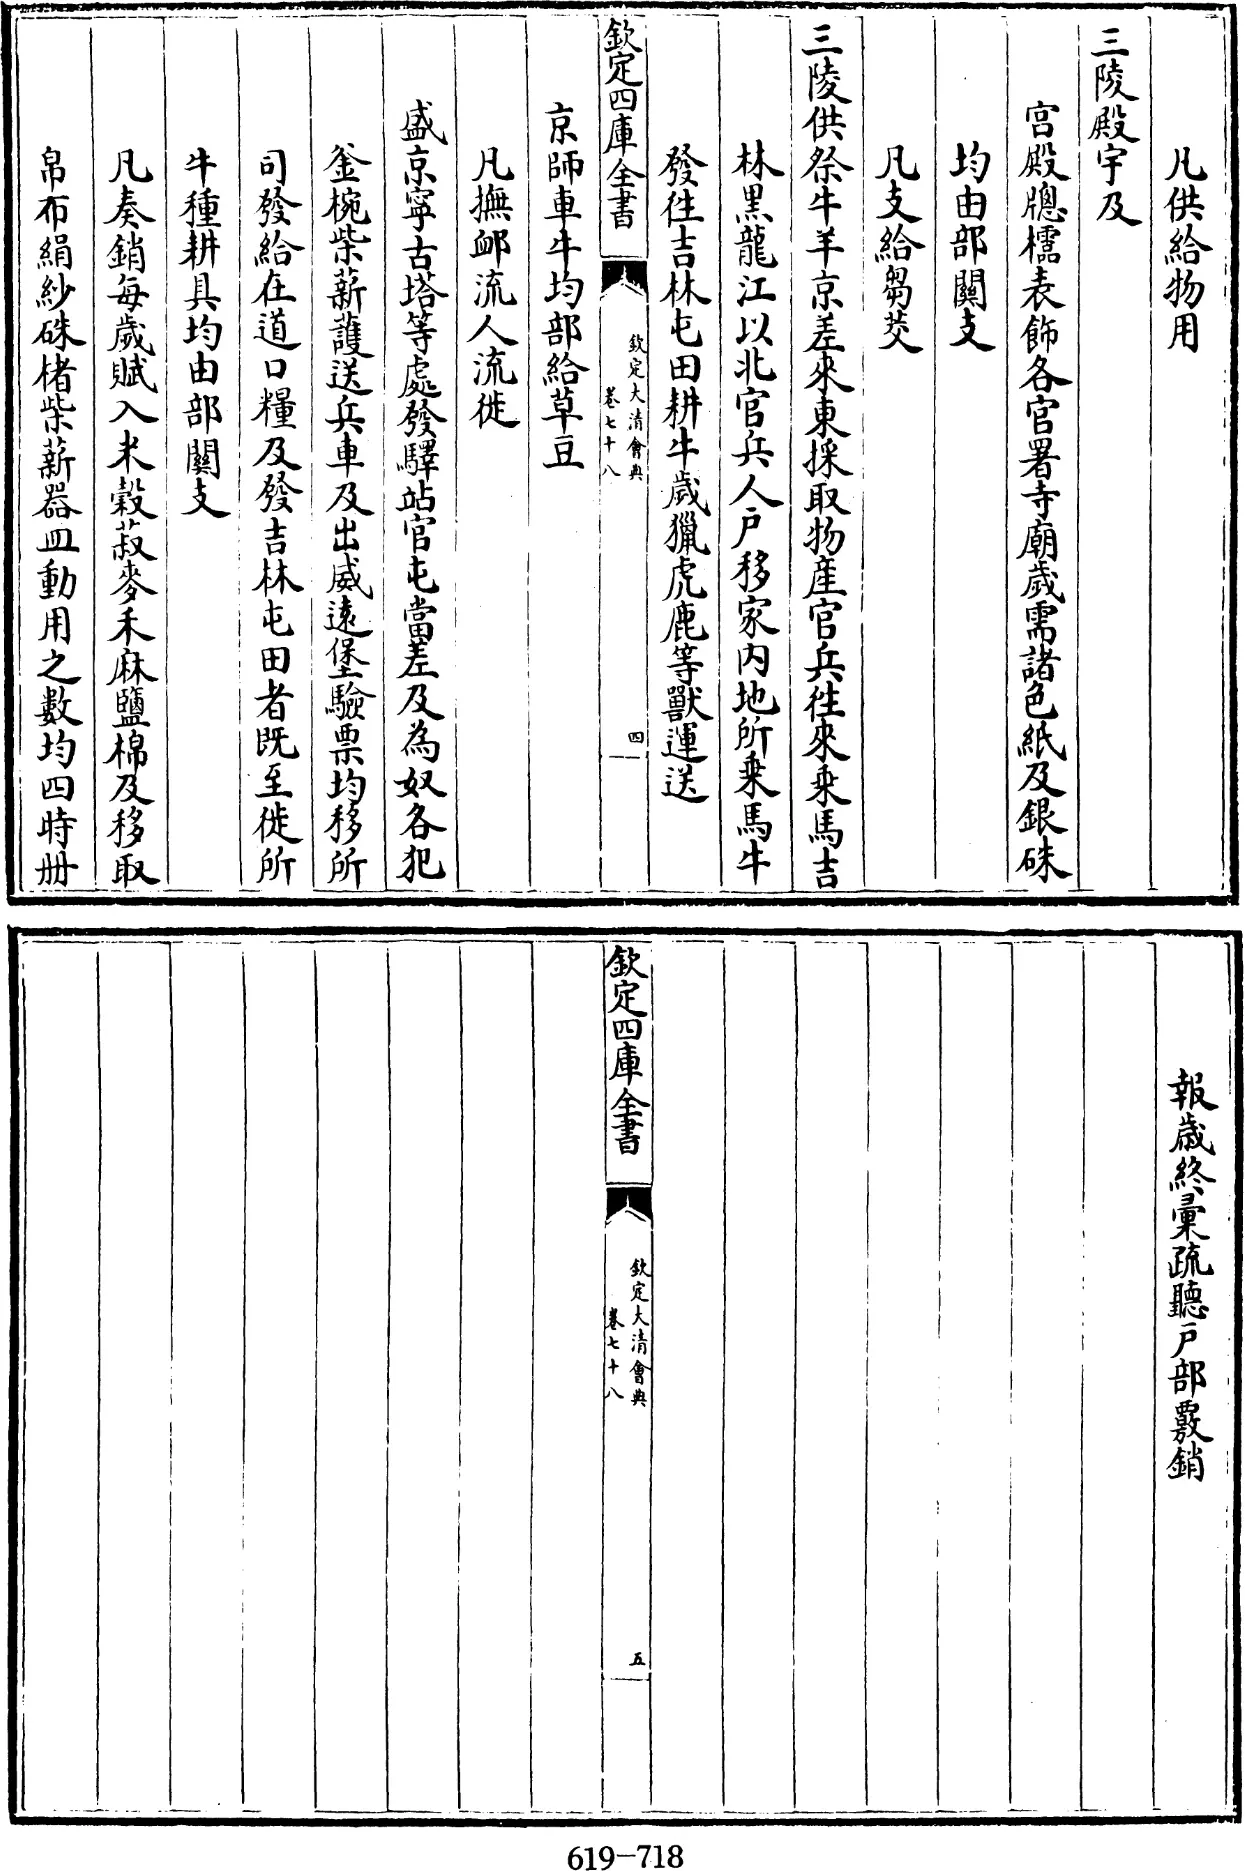 凡供給物用
三陵殿宇及
宮殿牕櫺表飾各官署寺廟歲需諸色紙及銀硃
均由部關支
凡支給芻茭
三陵供祭牛羊京差來東採取物産官兵往來乗馬吉
林黒龍江以北官兵人户移家内地所乗馬牛
發往吉林屯田耕牛歲獵虎鹿等獸運送
欽定四庫全書
欽定大清會典
卷七十八
四
京師車牛均部給草豆
凡撫䘏流人流徙
盛京寧古塔等處發驛站官屯當差及為奴各犯
釜椀柴薪護送兵車及出威逺堡驗票均移所
司發給在道口糧及發吉林屯田者既至徙所
牛種耕具均由部關支
凡奏銷每歲賦入米穀菽麥禾麻鹽棉及移取
帛布絹紗硃楮柴薪器皿動用之數均四時册
報歲終彙疏聽户部覈銷
欽定四庫全書
欽定大清會典
卷七十八
五
619-718